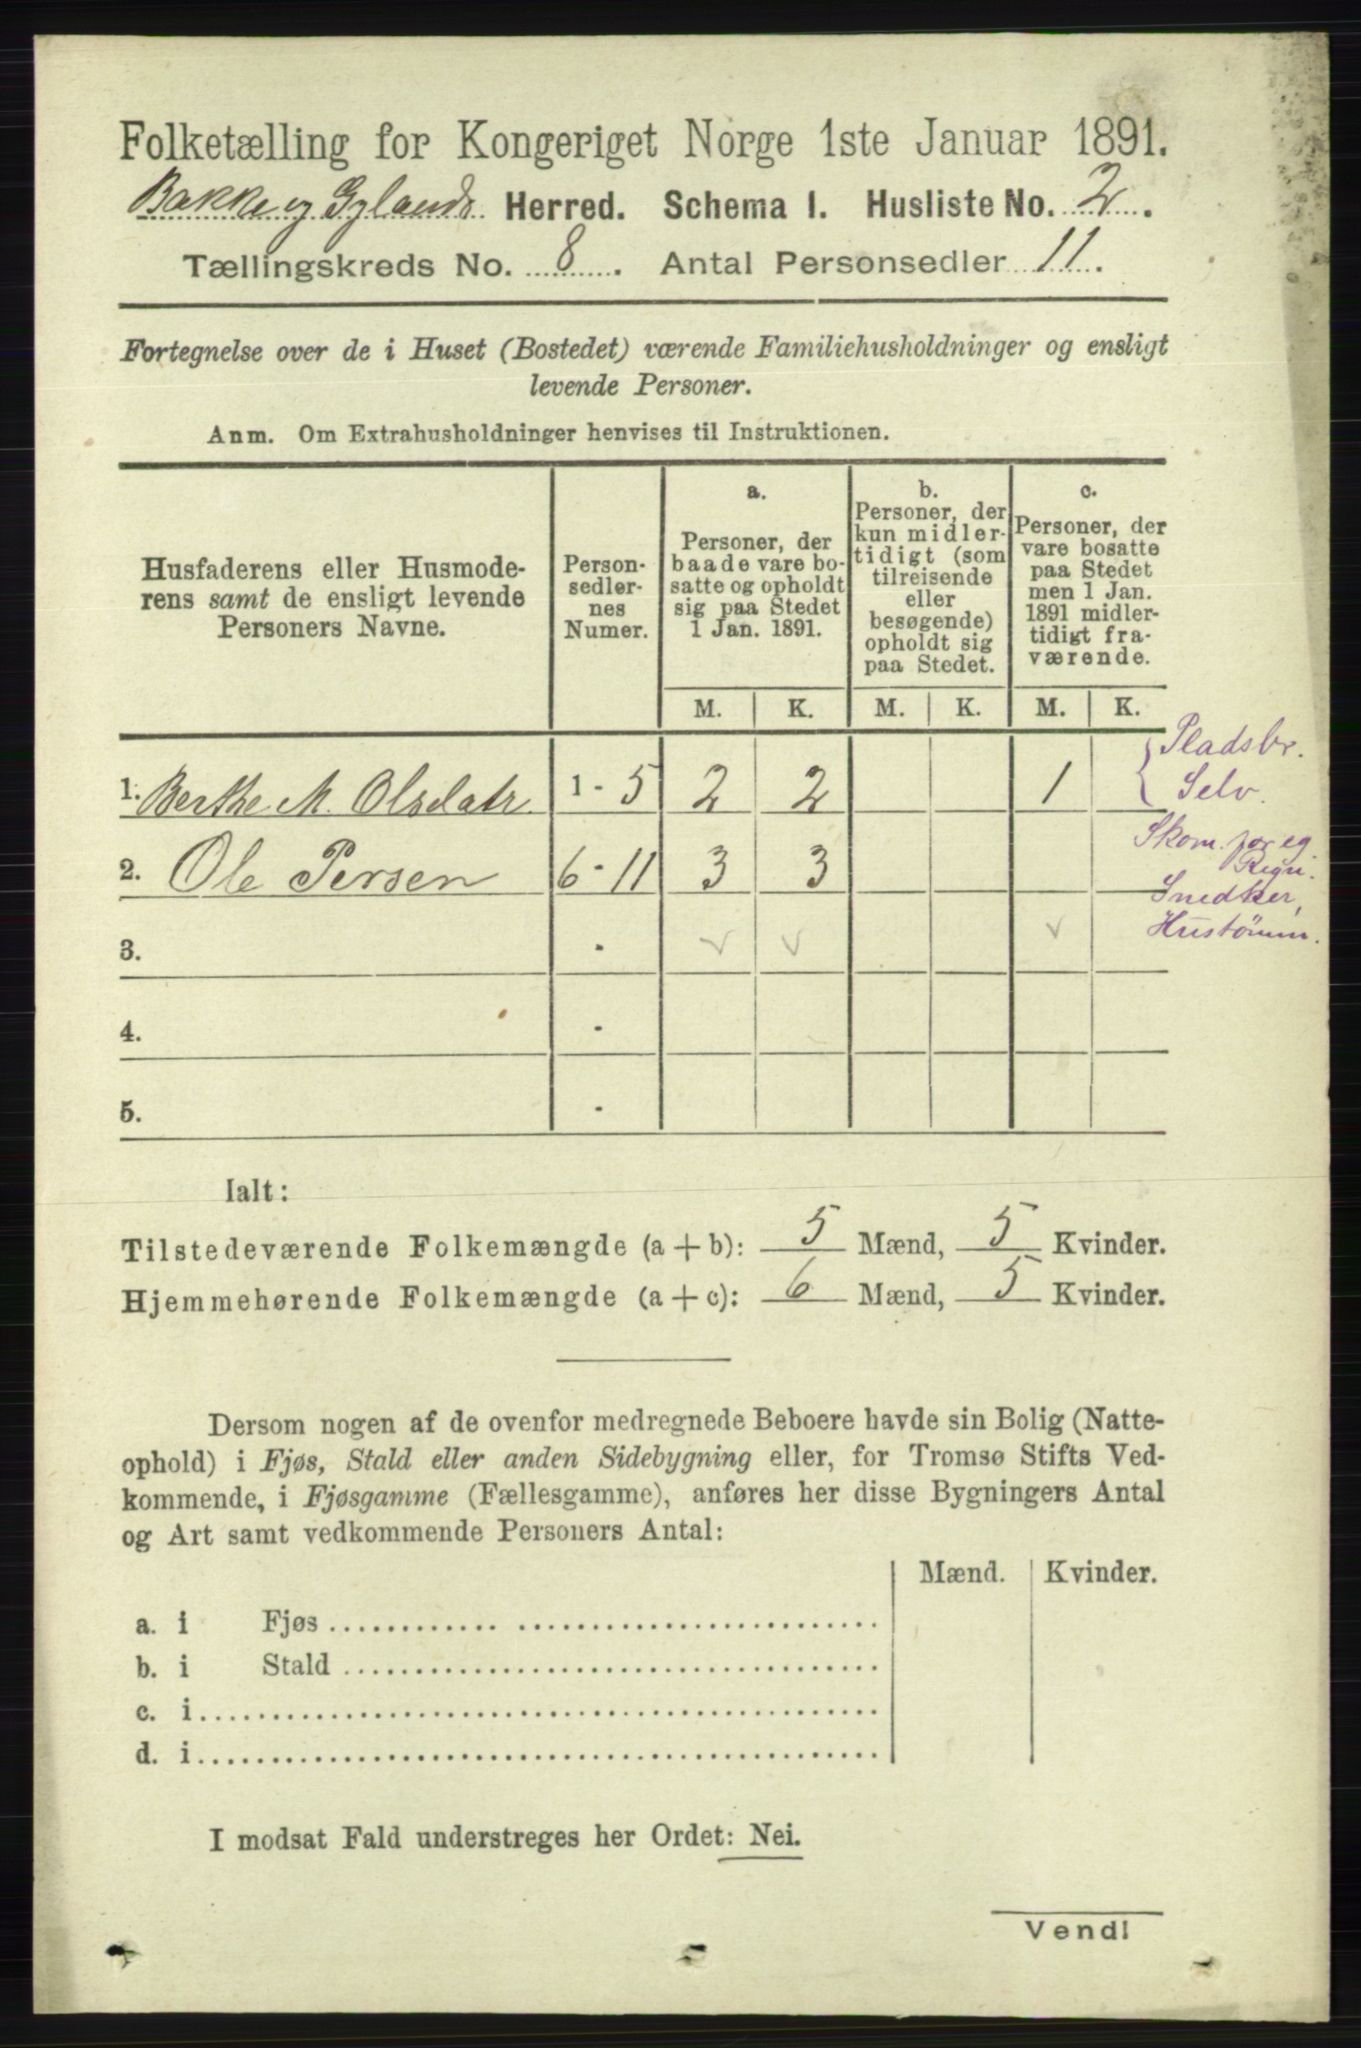 Folketælling for Kongeriget Norge 1ste Januar 1891.
Bakke og Gylands Herred. Schema I. Husliste No. 2.
Tællingskreds No. 8. Antal Personsedler 11.
Fortegnelse over de i Huset (Bostedet) værende Familiehusholdninger og ensligt
levende Personer.
Anm. Om Extrahusholdninger henvises til Instruktionen.
Husfaderens eller Husmode-
rens samt de ensligt levende
Personers Navne.
Person-
sedler-
nes
Numer.
a.
Personer, der
baade vare bo-
satte og opholdt
sig paa Stedet
1 Jan. 1891.
b.
Personer, der
kun midler-
tidigt (som
tilreisende
eller
besøgende)
opholdt sig
paa Stedet.
c.
Personer, der
vare bosatte
paa Stedet
men 1 Jan.
1891 midler-
tidigt fra-
værende.
M. K. M. K. M. K.
1. Berthe M. Olsdatr. 1 - 5 2 2 1
Pladsbr.
Selv.
2. Ole Persen 6 - 11 3 3
Skom. for eg
Regn.
Snedker,
Hustømm.
3. -
4. -
5. -
Ialt:
Tilstedeværende Folkemængde (a + b): 5 Mænd, 5 Kvinder.
Hjemmehørende Folkemængde (a + c): 6 Mænd, 5 Kvinder.
Dersom nogen af de ovenfor medregnede Beboere havde sin Bolig (Natte-
ophold) i Fjøs, Stald eller anden Sidebygning eller, for Tromsø Stifts Ved-
kommende, i Fjøsgamme (Fællesgamme), anføres her disse Bygningers Antal
og Art samt vedkommende Personers Antal:
Mænd. Kvinder.
a. i Fjøs
b. i Stald
c. i
d. i
I modsat Fald understreges her Ordet: Nei.
Vend!